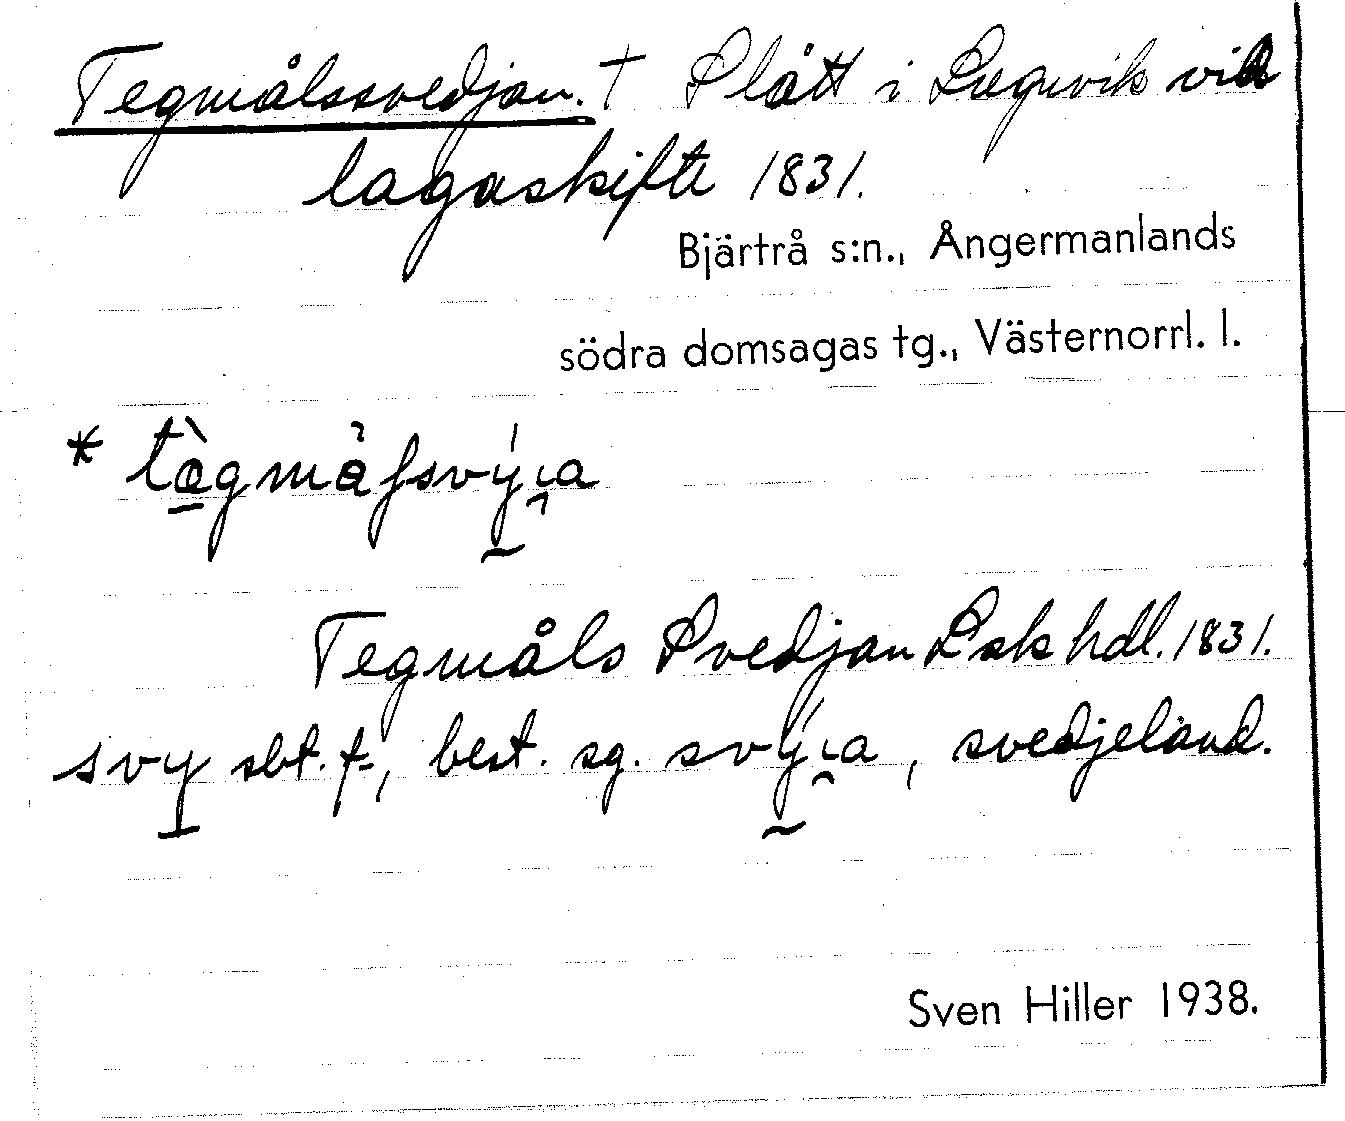 Tegmålssvedjan. † Slått i Lugnvik vid
lagaskifte 1831.
Bjärtrå s:n., Ångermanlands
södra domsagas tg., Västernorrl. l.
*
Tegmåls Svedjan Lsk hdl. 1831.
svy sbt. f., best. sg. , svedjeland.
Sven Hiller 1938.